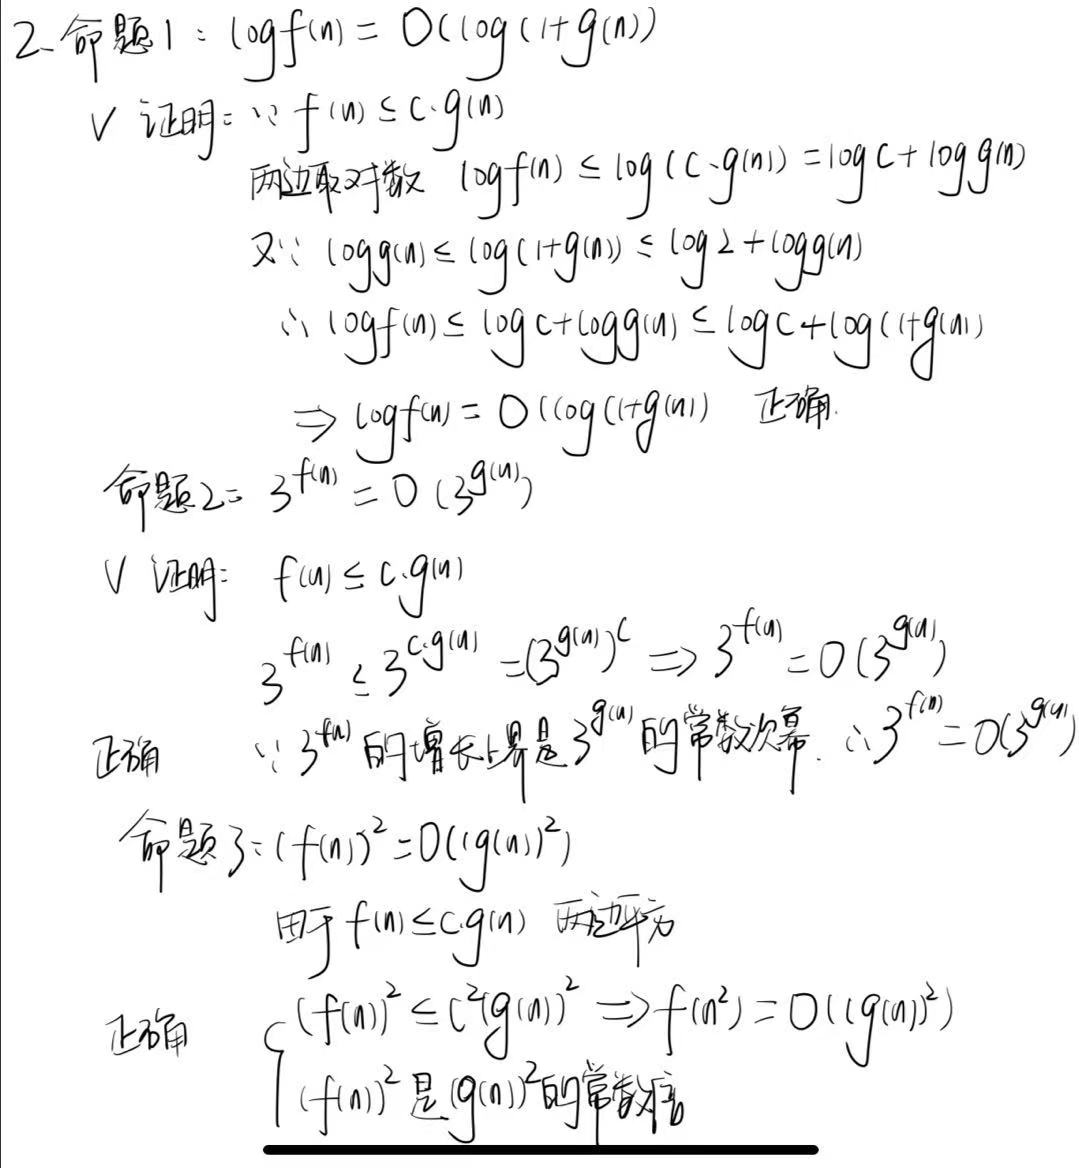 2. 命题1: logf(n) = O(log(1+g(n))
√ 证明: ∵ f(n) ≤ c·g(n)
两边取对数 logf(n) ≤ log(c·g(n)) = log c + log g(n)
又∵ log g(n) ≤ log(1+g(n)) ≤ log 2 + log g(n)
∴ logf(n) ≤ log c + log g(n) ≤ log c + log(1+g(n))
⇒ logf(n) = O(log(1+g(n)) 正确.
命题2: 3^f(n) = O(3^g(n))
√ 证明: f(n) ≤ c·g(n)
3^f(n) ≤ 3^c·g(n) = (3^g(n))^c ⇒ 3^f(n) = O(3^g(n))
正确 ∵ 3^f(n) 的增长上界是 3^g(n) 的常数次幂. ∴ 3^f(n) = O(3^g(n))
命题3: (f(n))² = O((g(n))²)
由于 f(n) ≤ c·g(n) 两边平方
正确 (f(n))² ≤ c²(g(n))² ⇒ f(n²) = O((g(n))²)
(f(n))² 是 (g(n))² 的常数倍